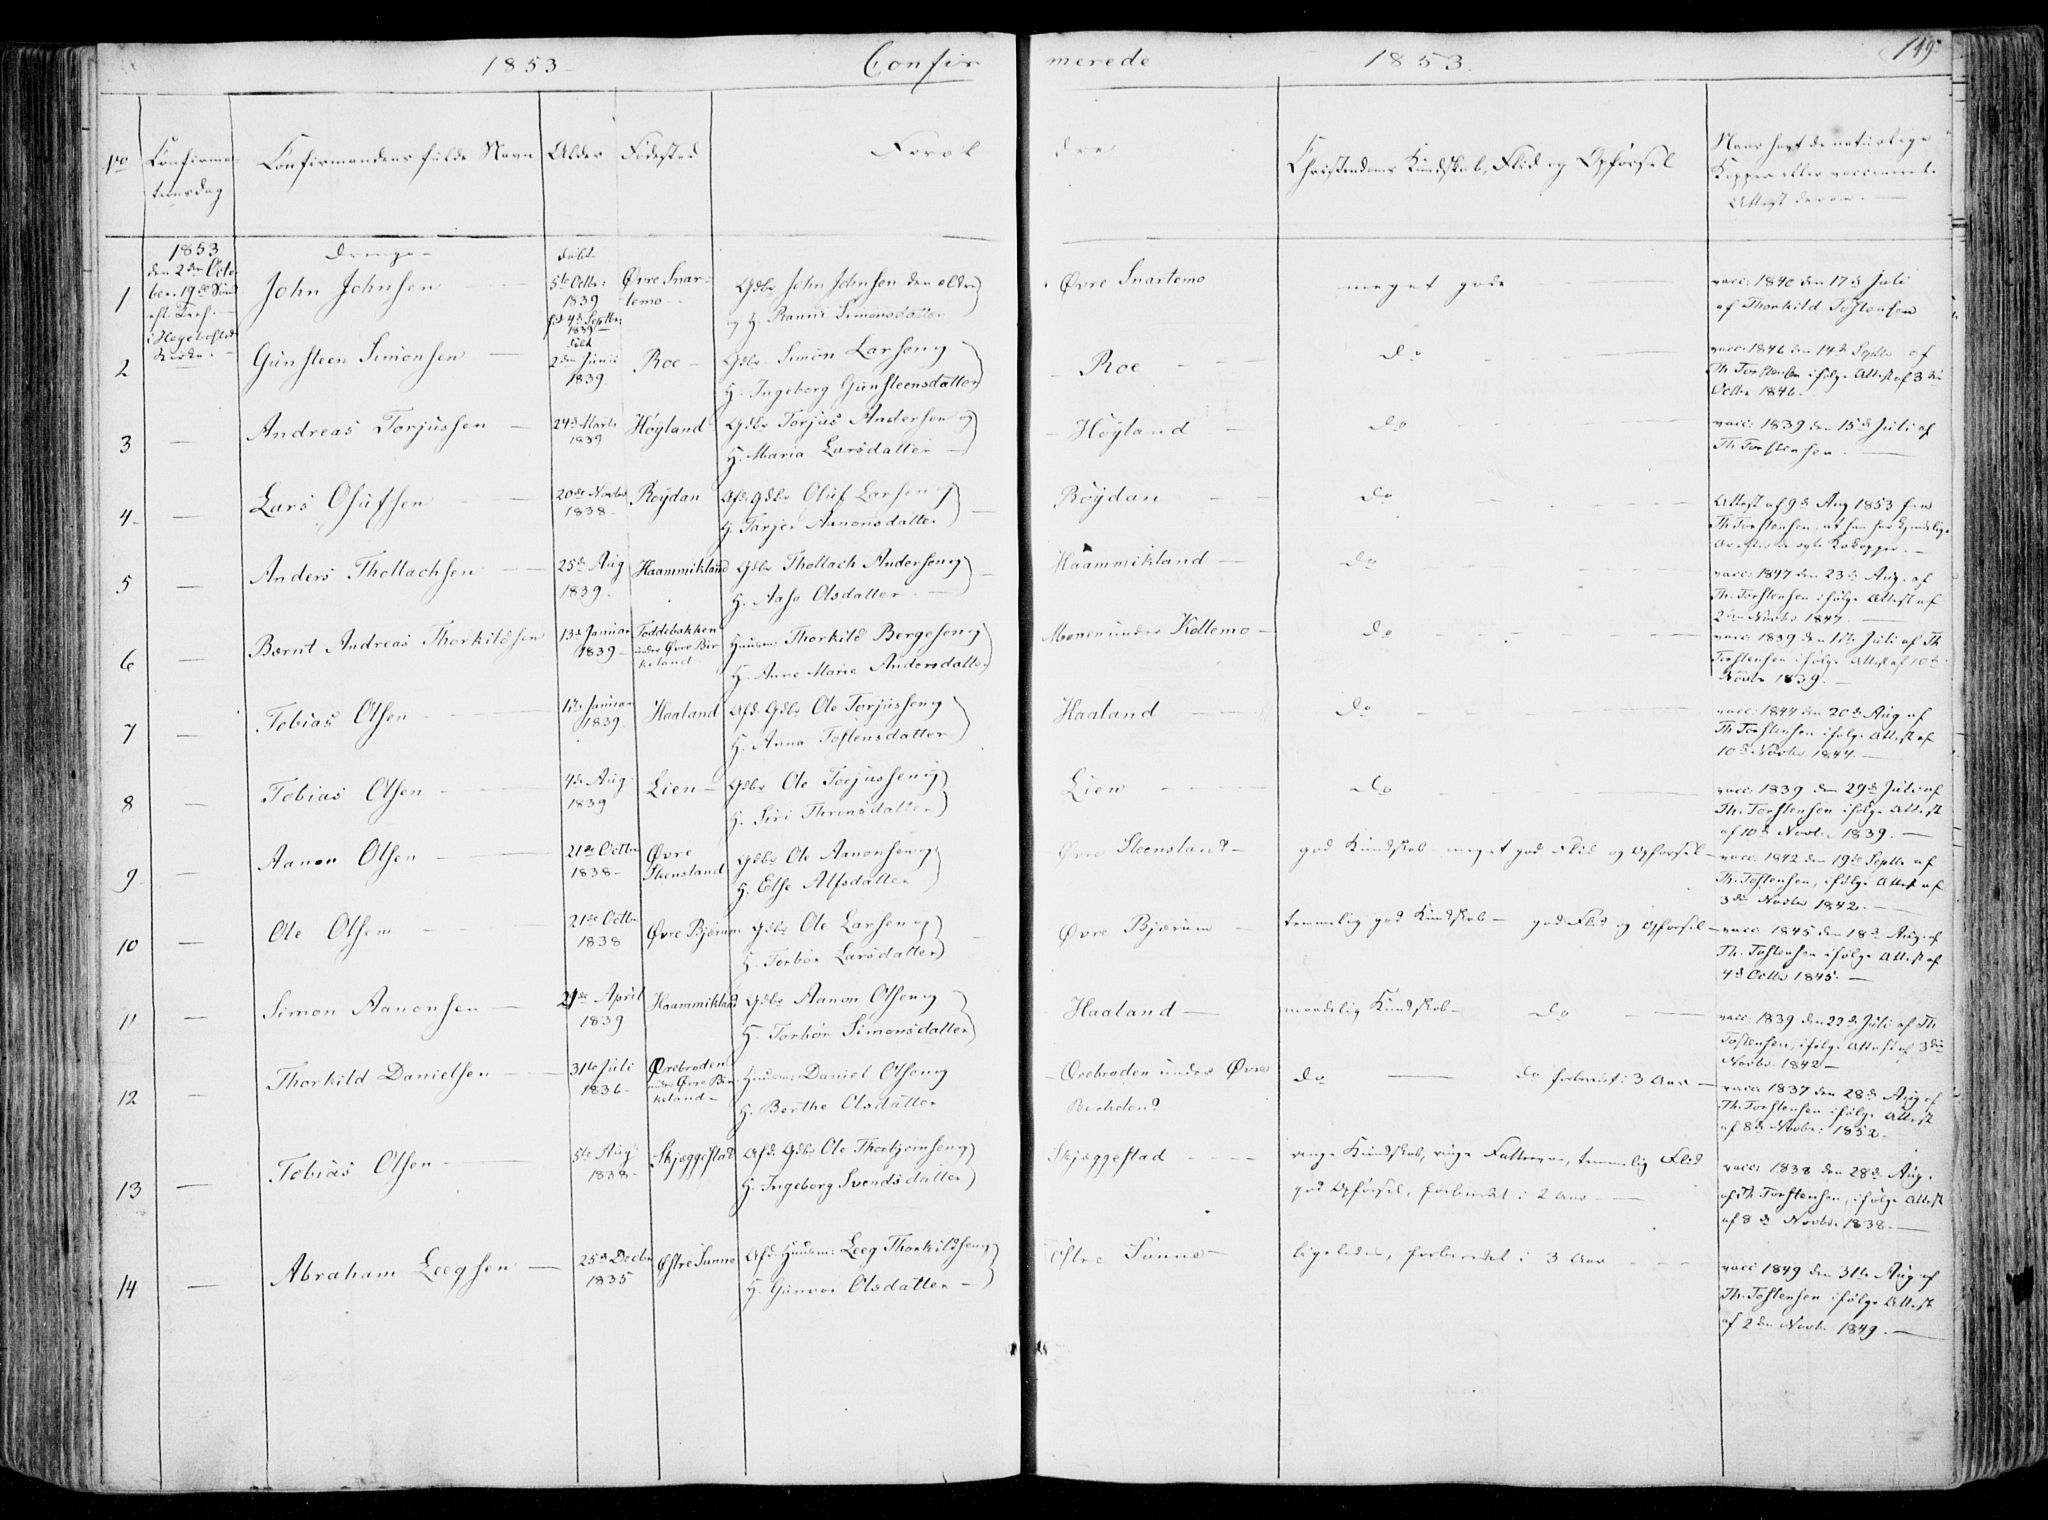 1853 Confir merede 1853. 149
No Confirma- Confirmandens fulde Navn Alder Fødested Foræl dre Christendoms Kundskab, Flid og Opførsel Naar havt de naturlige
tionsdag Kopper eller vaccineret.
Attest derom.
1853 Drenge døbt
den 2den Octo-
ber 19de Sønd
eft. Tref.
i Hegebostad
Kirke.
1 John Johnsen 5te Octbr: Øvre Snar- Gdbr John Johnsen den eldre Øvre Snartemo meget gode vacc: 1840 den 17de Juli
1839 temo og H. Ranni Simonsdatter af Thorkild Tostensen
fød 4de Septbr
1839
2 Gunsteen Simonsen døbt 2den Junii Roe Gdbr Simon Larsen og Roe do vacc: 1846 den 14de Septbr af
1839. H. Ingeborg Gunsteensdatter Th. Torstensen ifølge Attest af 3die
Octbr 1846.
3 Andreas Torjussen 24de Marts Høyland Gdbr Torjus Andersen og Høyland do vacc: 1839 den 15de Juli af
1839 H. Maria Larsdatter Th. Torstensen.
4 Lars Olufsen 20de Novbr Røydan Afd. Gdbr Oluf Larsen og Røydan do Attest af 9de Aug 1853 fra
1838 H. Tarjer Aanonsdatter Th. Torstensen, at han har
Kokopper.
5 Anders Thollachsen 25de Aug Haammikland Gdbr Thollach Andersen og Haammikland do vacc: 1847 den 23de Aug. af
1839. H. Aase Olsdatter. Th. Torstensen ifølge Attest af
2den Novbr 1847.
6 Bærnt Andreas Thorkildsen 13de Januar Toddebakken Huusm: Thorkild Bergesen og Monen under Kollemo do vacc: 1839 den 11te Juli af Th
1839 under Øvre Bir- H. Anne Marie Andersdatter Torstensen ifølge Attest af 10de
keland Novbr 1839.
7 Tobias Olsen Januar Haaland Afd. Gdbr Ole Torjussen og Haaland do vacc: 1844 den 20de Aug af
1839. H. Anna Tostensdatter Th. Torstensen ifølge Attest af
10de Novbr 1844.
8 Tobias Olsen 4de Aug. Lien Gdbr Ole Torjussen og Lien do vacc: 1839 den 29de Juli af
1839 H. Siri Thronsdatter Th. Torstensen ifølge Attest
af 10de Novbr. 1839.
9 Aanon Olsen 21de Octbr Øvre Gdbr Ole Aanonsen og Øvre Steensland god Kundskab meget god Flid og Opførsel vacc: 1842 den 19de Septbr af
1838 Stensland H. Else Alfsdatter Th. Tostensen, ifølge Attest af
3die Novbr 1842.
10 Ole Olsen 21de Octbr Øvre Bjærum Gdbr Ole Larsen og Øvre Bjærum temmelig god Kundskab god Flid og Opførsel vacc: 1845 den 18de Aug. af
1838 H. Torbør Larsdatter Th. Tostensen ifølge Attest af
4de Octbr 1845.
11 Simon Aanonsen 21de April Haammikland Gdbr Aanon Olsen og Haaland maadelig Kundskab do vacc: 1839 den 22de Juli af Th
1839 H. Torbør Simonsdatter Tostensen, ifølge Attest af 3die
Novbr. 1842
12 Thorkild Danielsen 31te Juli Orebroden Huusm: Daniel Olsen og Orebroden under Øvre do do forberedt i 3 Aar vacc: 1837 den 28de Aug af
1836 under Øvre Bir- H. Berthe Olsdatter Berkeland Th. Torstensen ifølge Attest
keland af 8de Novbr: 1852
13 Tobias Olsen 5te Aug Skjæggestad Afd. Gdbr Ole Thorbjørnsen og Skjæggestad ringe Kundskab, ringe Fatteevne, temmelig Flid vacc: 1838 den 28de Aug.
1838 H. Ingeborg Svendsdatter god Opførsel, forberedt i 2 Aar. af Th Torstensen, ifølge Attest
af 8de Novbr. 1838.
14 Abraham Leegsen 25de Decbr Østre Sunne Afd. Huusm: Leeg Thorkildsen og Østre Sunne ligeledes, forberedt i 3 Aar vacc: 1849 den 31te Aug af
1835 H. Gunvor Olsdatter Th. Tostensen ifølge Attest
af 2den Novbr. 1849.